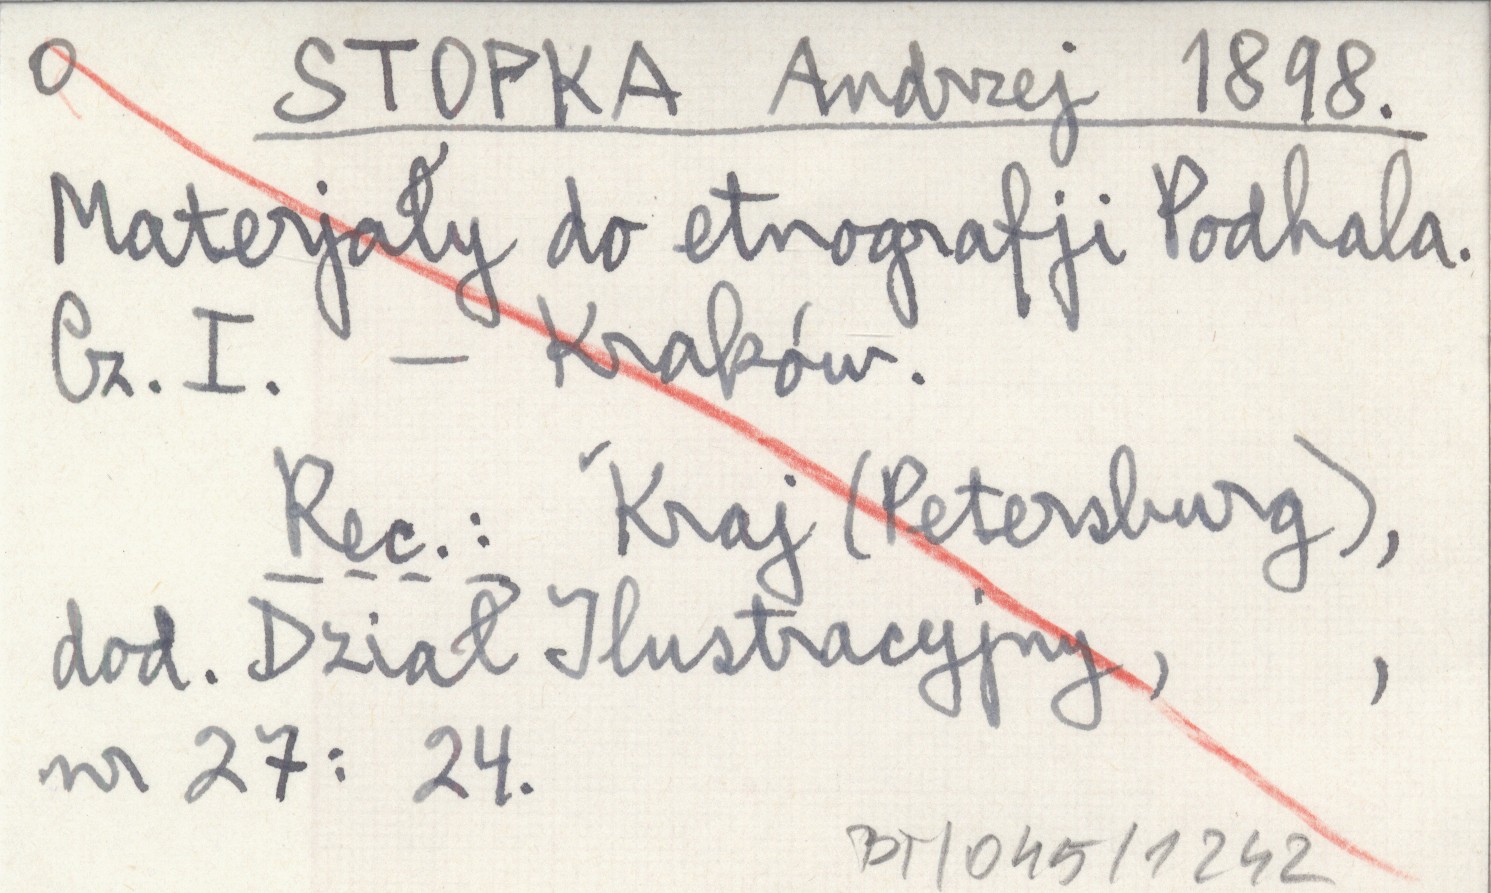 O STOPKA Andrzej 1898.
Materjały do etnografji Podhala.
Cz. I. — Kraków.
Rec.: Kraj (Petersburg),
dod. Dział Ilustracyjny, ,
nr 27: 24.
BT/045/1242